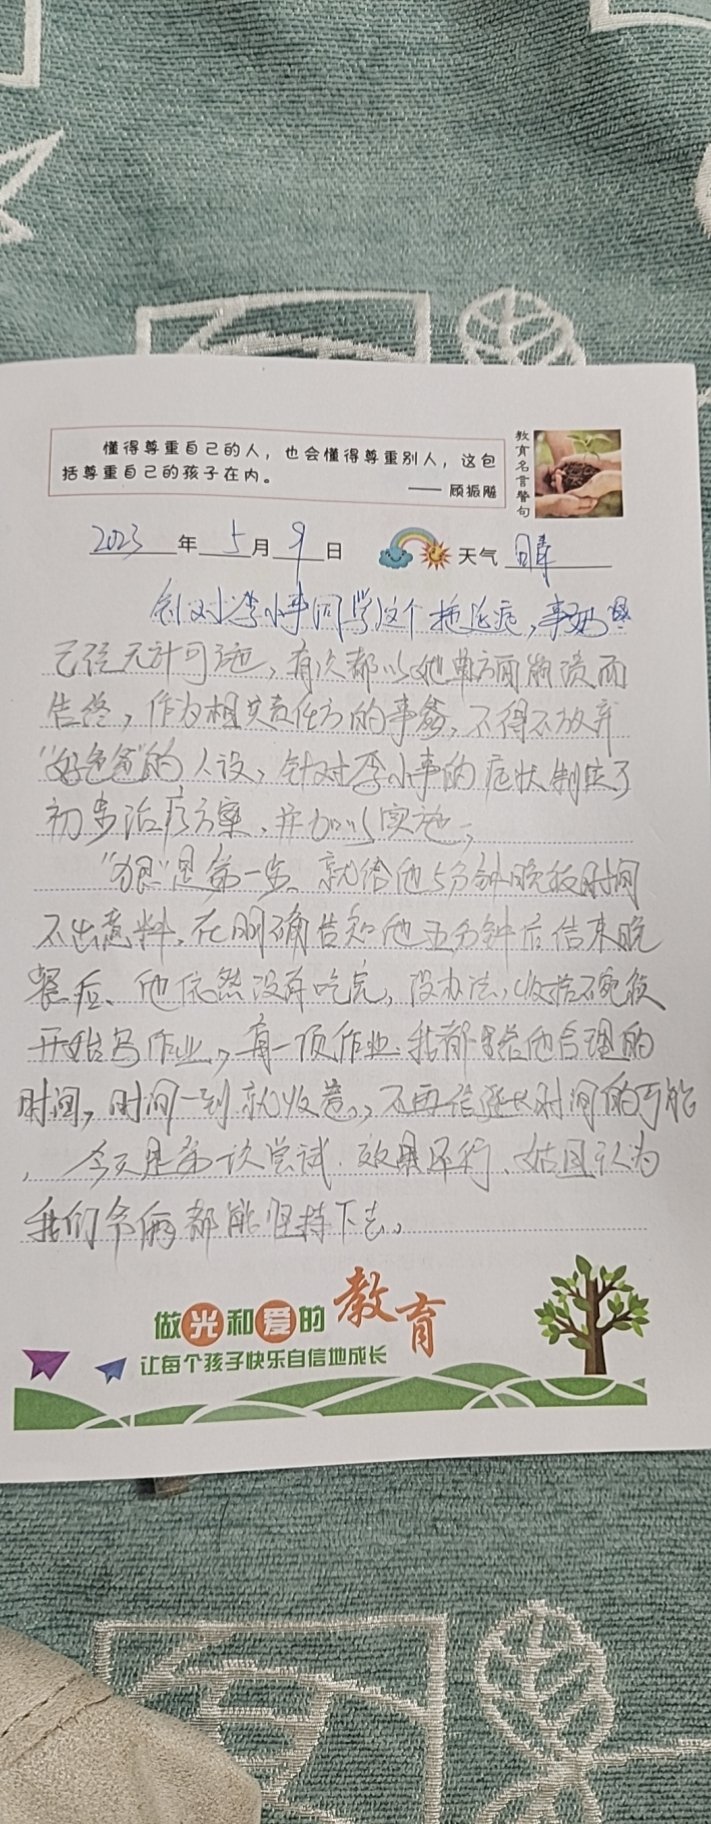 懂得尊重自己的人，也会懂得尊重别人，这包
括尊重自己的孩子在内。
—— 顾振飚
教育名言警句
2023年5月9日 天气 晴
针对李小事同学这个拖延症，事妈
已经无计可施，有次都以她单方面崩溃而
告终，作为相关责任方的事爸，不得不放弃
“好爸爸”的人设，针对李小事的症状制定了
初步治疗方案，并加以实施，
“狠”是第一步、就给他5分钟晚饭时间
不出意料，在明确告知他五分钟后结束晚
餐后、他依然没有吃完，没办法，收拾碗筷
开始写作业，每一项作业，我都给他合理的
时间，时间一到就收卷，不再给延长时间的可能
，今天是第一次尝试，效果还行、姑且认为
我们爷俩都能坚持下去。
做光和爱的教育
让每个孩子快乐自信地成长